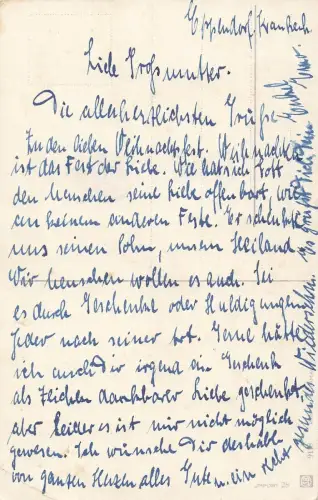 Eppendorf/Frankreich
Liebe Großmutter.
Die allerherzlichsten Grüße
zu den lieben Weihnachtsfest. Weihnachten
ist das Fest der Liebe. Wie hat sich Gott
den Menschen seine Liebe offenbart, wie
an keinem anderen Feste. Er schenkte
uns seinen Sohn, unsern Heiland.
Wir Menschen wollen es auch. Sei
es durch Geschenke oder Huldigungen
Jeder nach seiner Art. Gerne hätte
ich auch Dir irgend ein Geschenk
als Zeichen dankbarer Liebe geschenkt
aber leider es ist mir nicht möglich
gewesen. Ich wünsche Dir deshalb
von ganzen Herzen alles Gute u. ein recht
Wiedersehen. Es grüßt Dich Dein Enkel